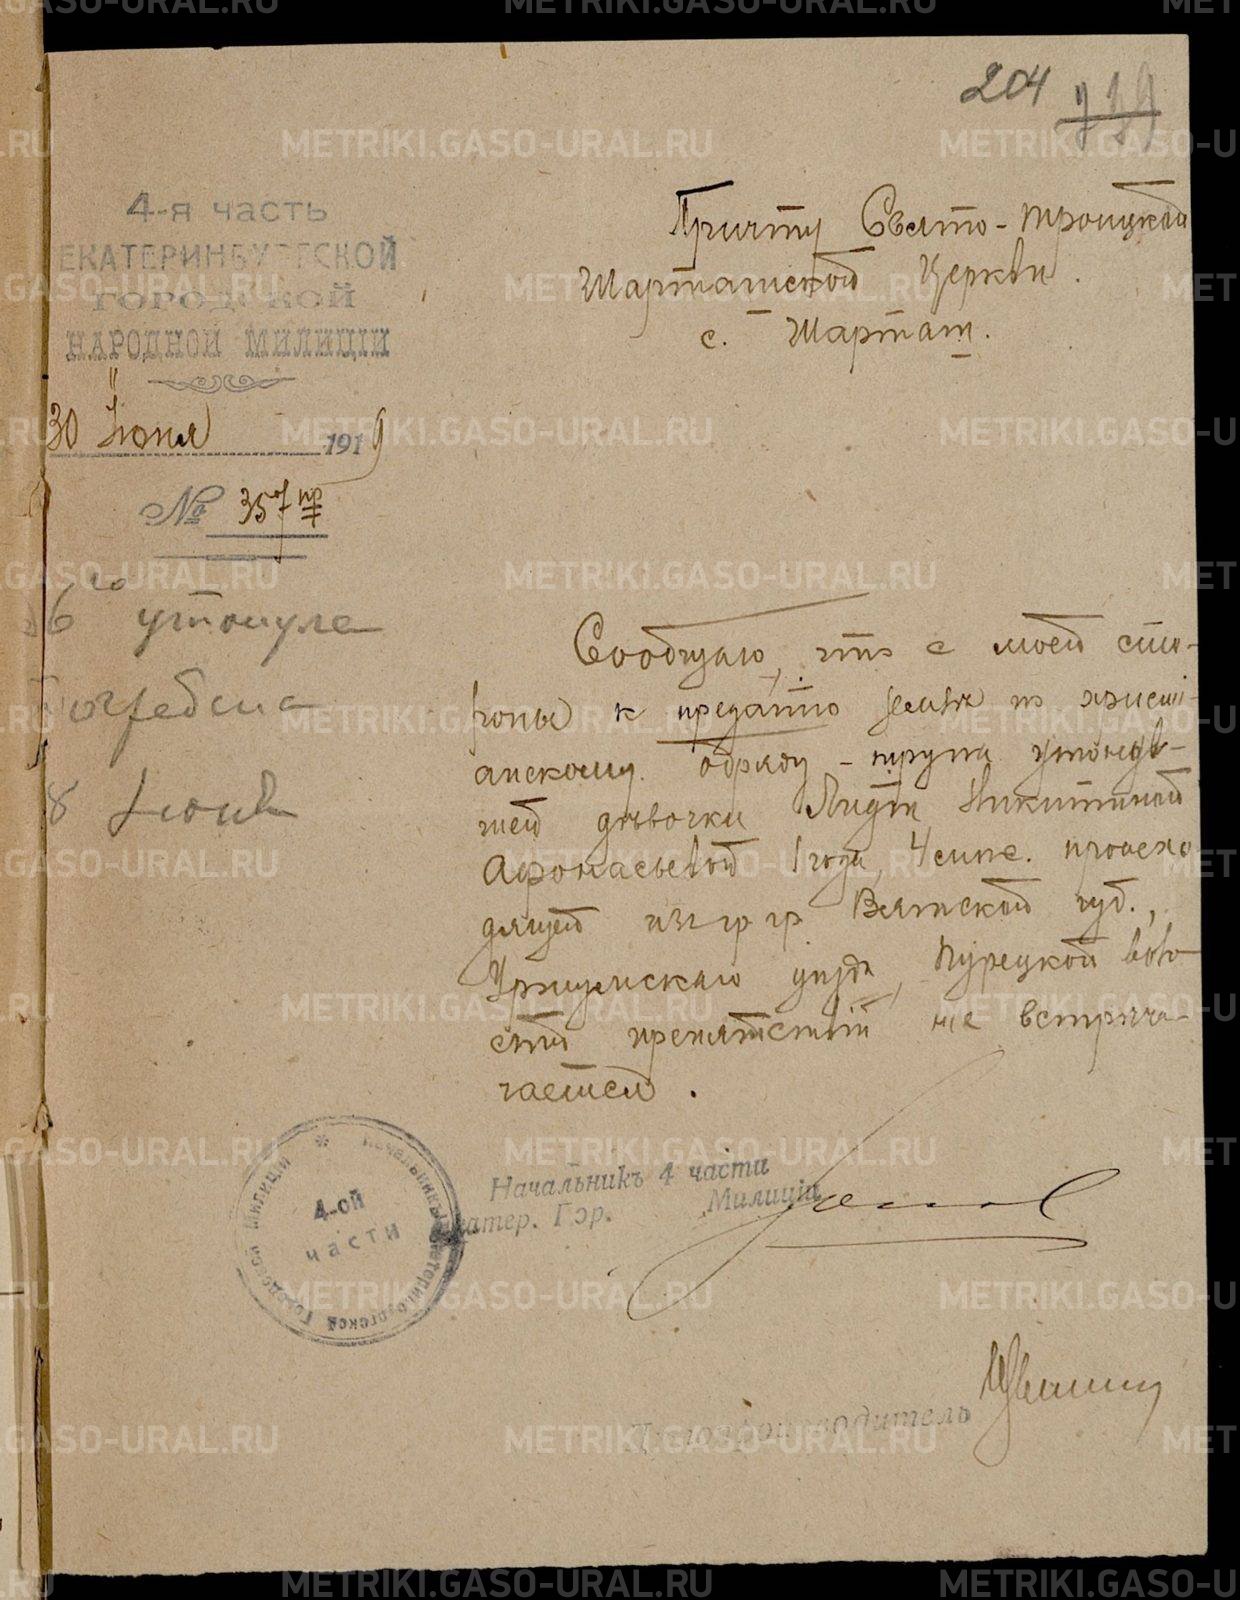 204 739
4-я часть
ЕКАТЕРИНБУРГСКОЙ
ГОРОДСКОЙ
НАРОДНОЙ МИЛИЦІИ
30 Іюня 1919
№ 357 пр
Причту Свято-Троицкой
Шарташской Церкви.
с. Шарташ.
6го утонула
Погребена
8 Іюня
Сообщаю, что с моей сто-
роны к преданію земле по христі-
анскому обряду - трупа утонув-
шей девочки Лидіи Никитиной
Афонасьевой 1 года, 4 мес. происхо
дящей из гр гр Вятской губ.,
Уржумскаго уезда, Турецкой воло
сти препятствій не встреча-
чается.
Начальникъ 4 части
Екатер. Гор. Милиціи
Начальникъ Екатеринбургской Городской Милиціи
4-ой
части
Делопроизводитель